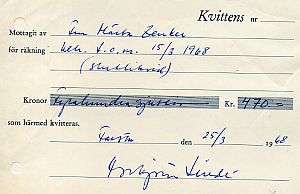 Kvittens nr
Mottagit av Fru Märta Zenker
för räkning t.o.m. 15/3 1968
(slutlikvid)
Kronor Fyrahundrasjuttio Kr. 470.-
som härmed kvitteras.
Farsta den 25/3 1968